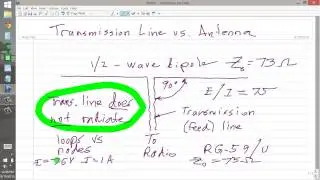 Transmission Line vs. Antenna
1/2 - wave dipole Z₀ = 73Ω
90°
E/I = 75
Trans. line does
not radiate
Transmission
(feed) line
loops vs
nodes
To
Radio
RG-59/U
I = I = 1A
Z₀ = 75Ω